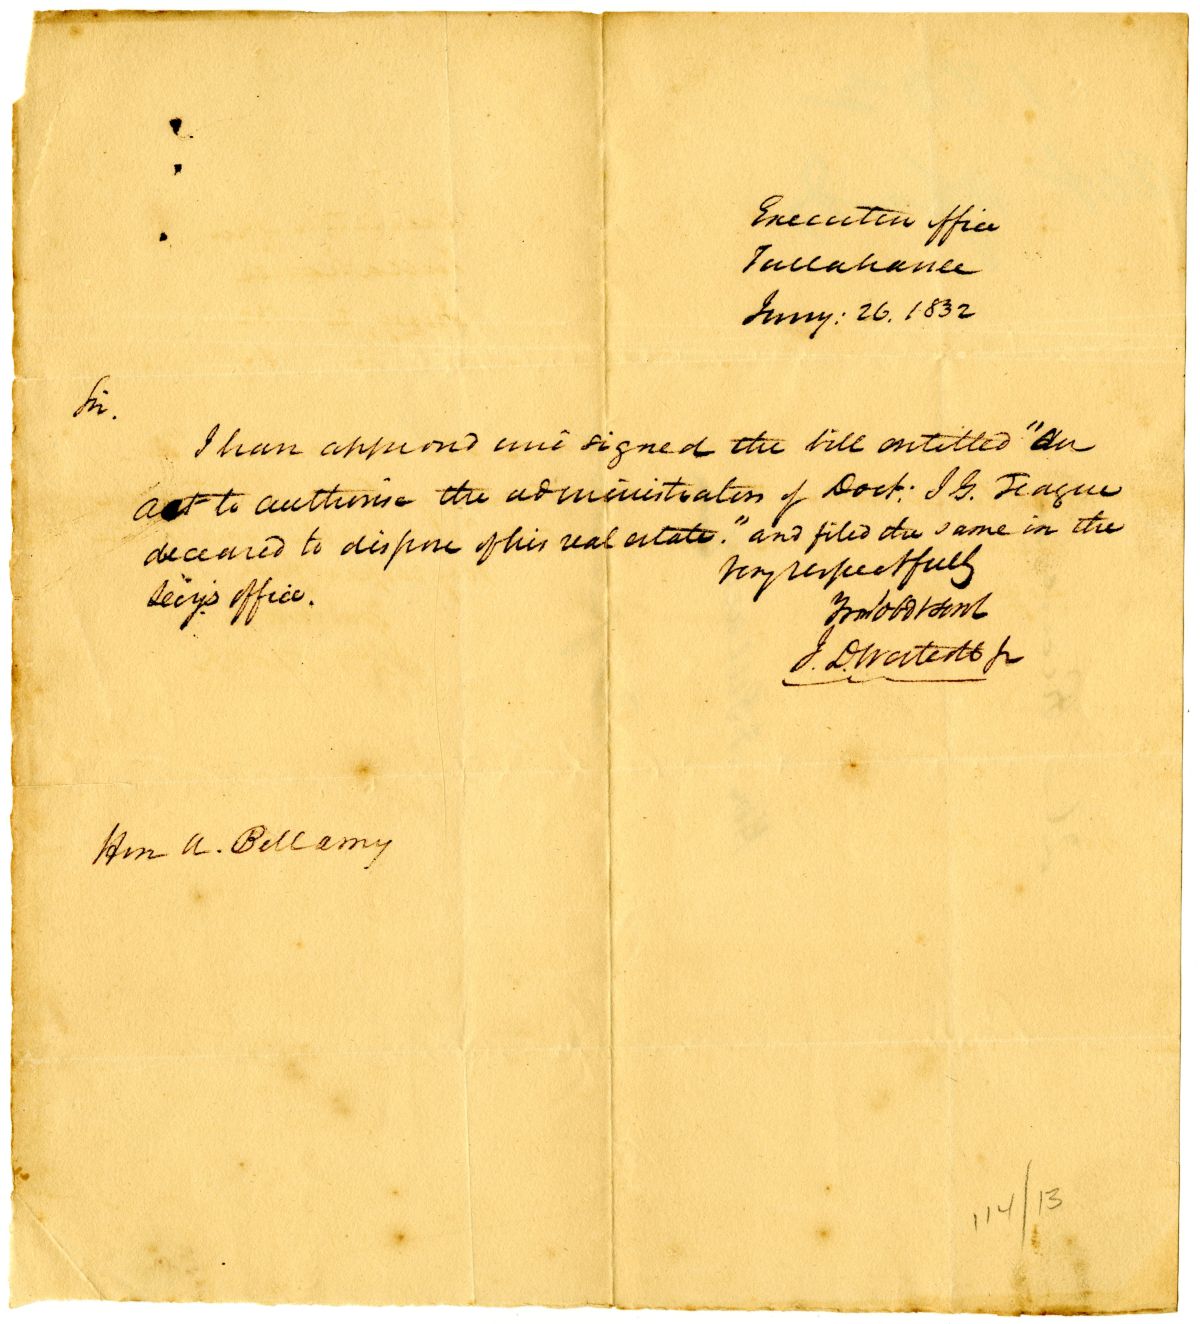 Executive office
Tallahassee
Jany: 26. 1832
Sir.
I have approved and signed the bill entitled "An
act to authorise the administrators of Doct: I G. Teague
deceased to dispose of his real estate." and filed the same in the
Secy's office.
Very respectfully
Yr obt Servt
J. D. Westcott Jr
Hon A. Bellamy
114/13